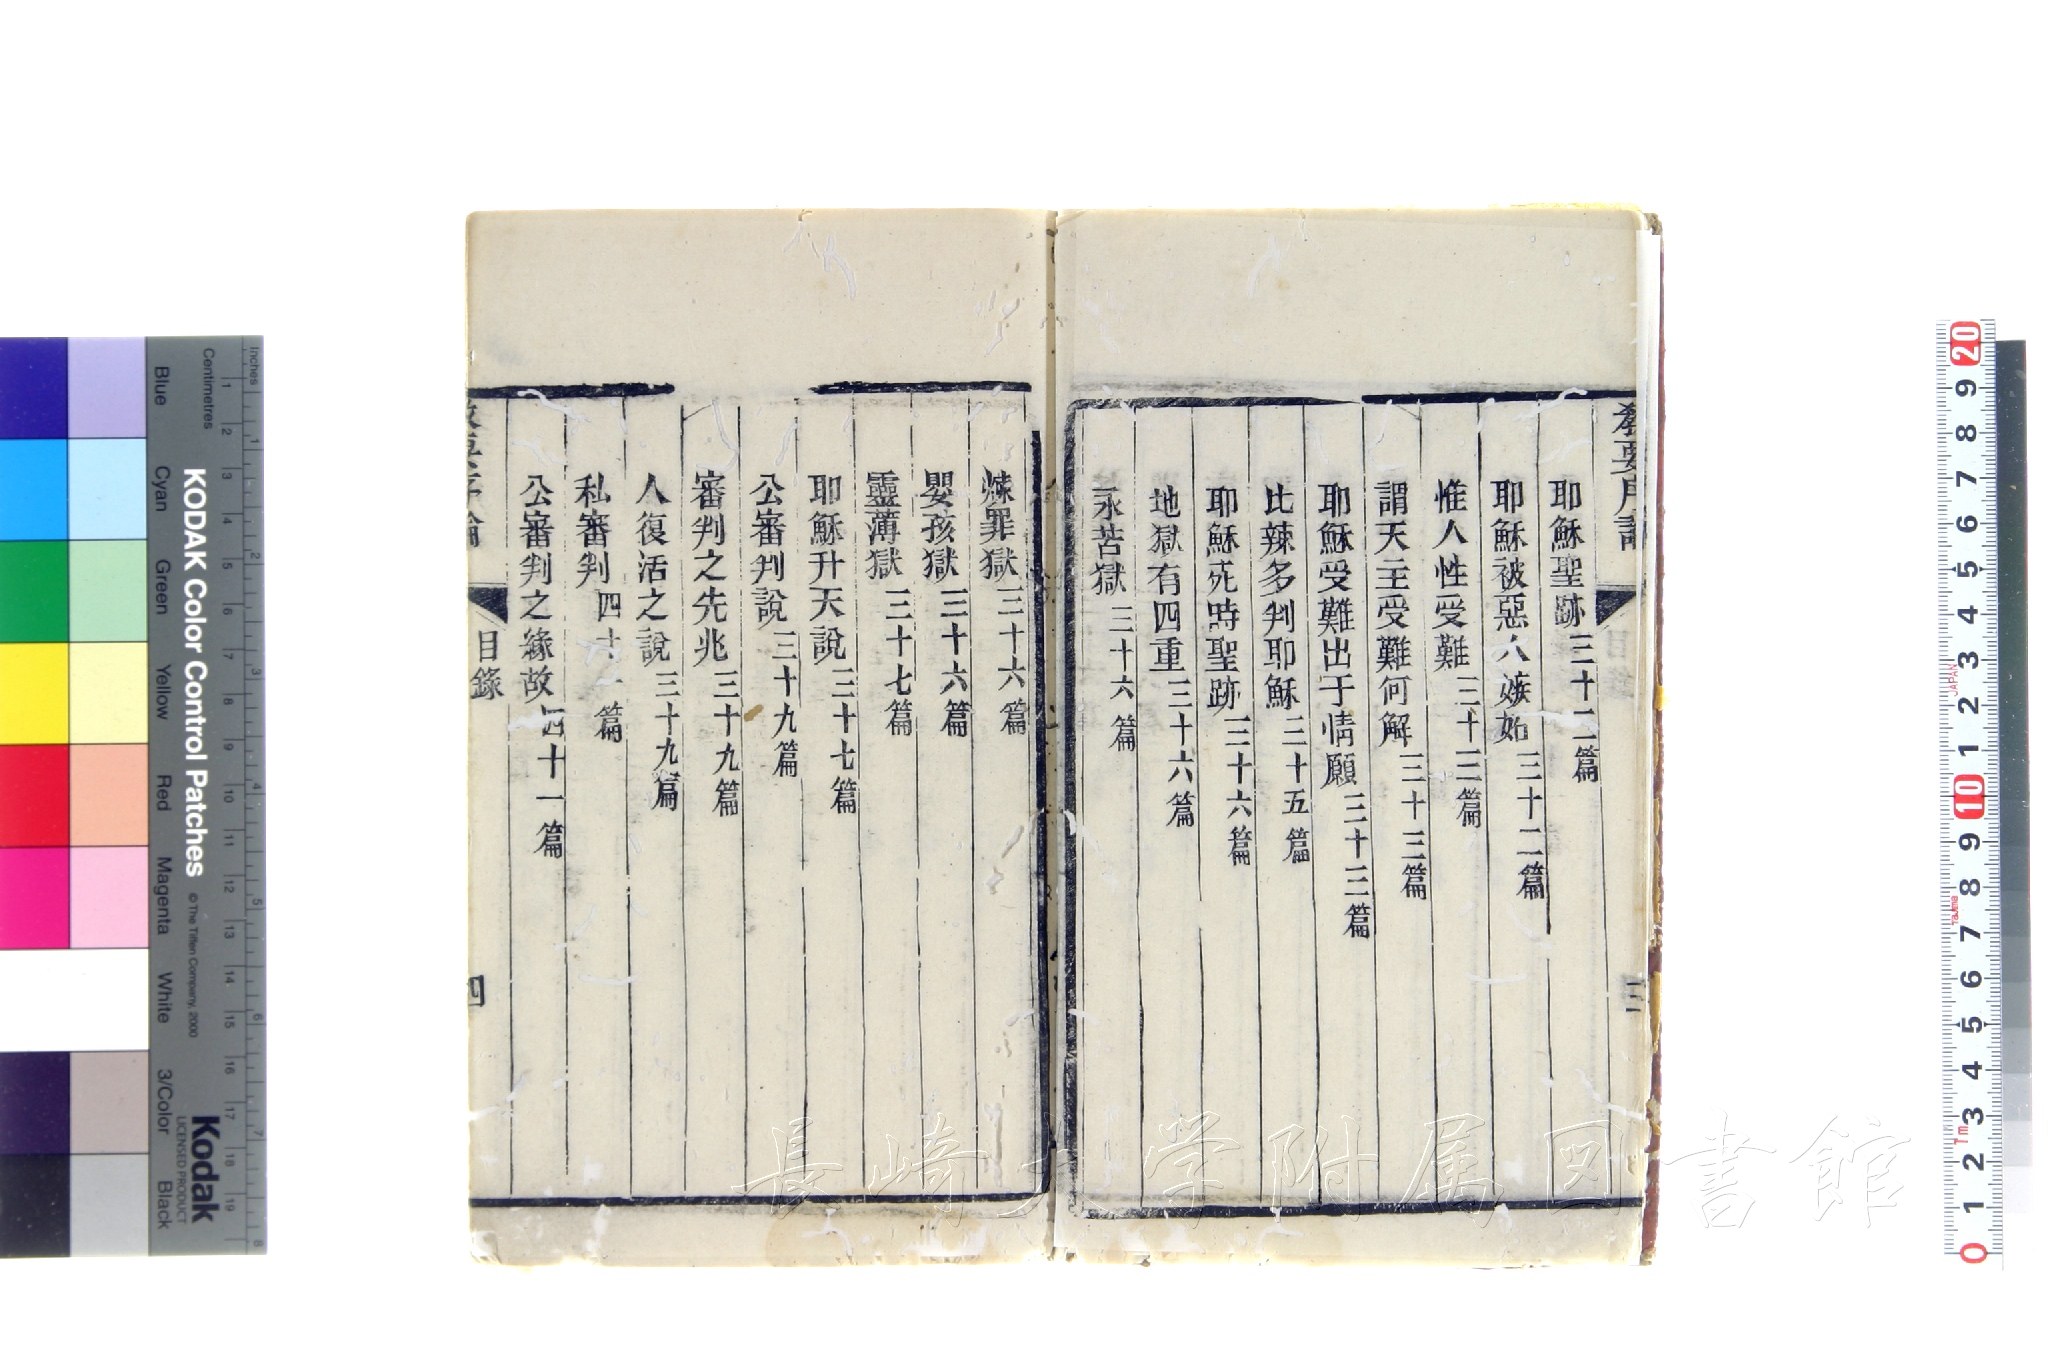 教要序論
三
耶穌聖跡三十二篇
耶穌被惡人嫉妬三十二篇
惟人性受難三十三篇
謂天主受難何解三十三篇
耶穌受難出于情願三十三篇
比辣多判耶穌三十五篇
耶穌死時聖跡三十六篇
地獄有四重三十六篇
永苦獄三十六篇
煉罪獄三十六篇
嬰孩獄三十六篇
靈薄獄三十七篇
耶穌升天說三十七篇
公審判說三十九篇
審判之先兆三十九篇
人復活之說三十九篇
私審判四十一篇
公審判之緣故四十一篇
目錄
四
長崎大学附属図書館
Inches
Centimetres
Blue
Cyan
Green
Yellow
Red
Magenta
White
3/Color
Black
KODAK Color Control Patches
© The Tiffen Company, 2000
Kodak
LICENSED PRODUCT
1 2 3 4 5 6 7 8 9 10 11 12 13 14 15 16 17 18 19
1 2 3 4 5 6 7 8
20 9 8 7 6 5 4 3 2 1 10 9 8 7 6 5 4 3 2 1 0
JAPAN
Tajima
1m